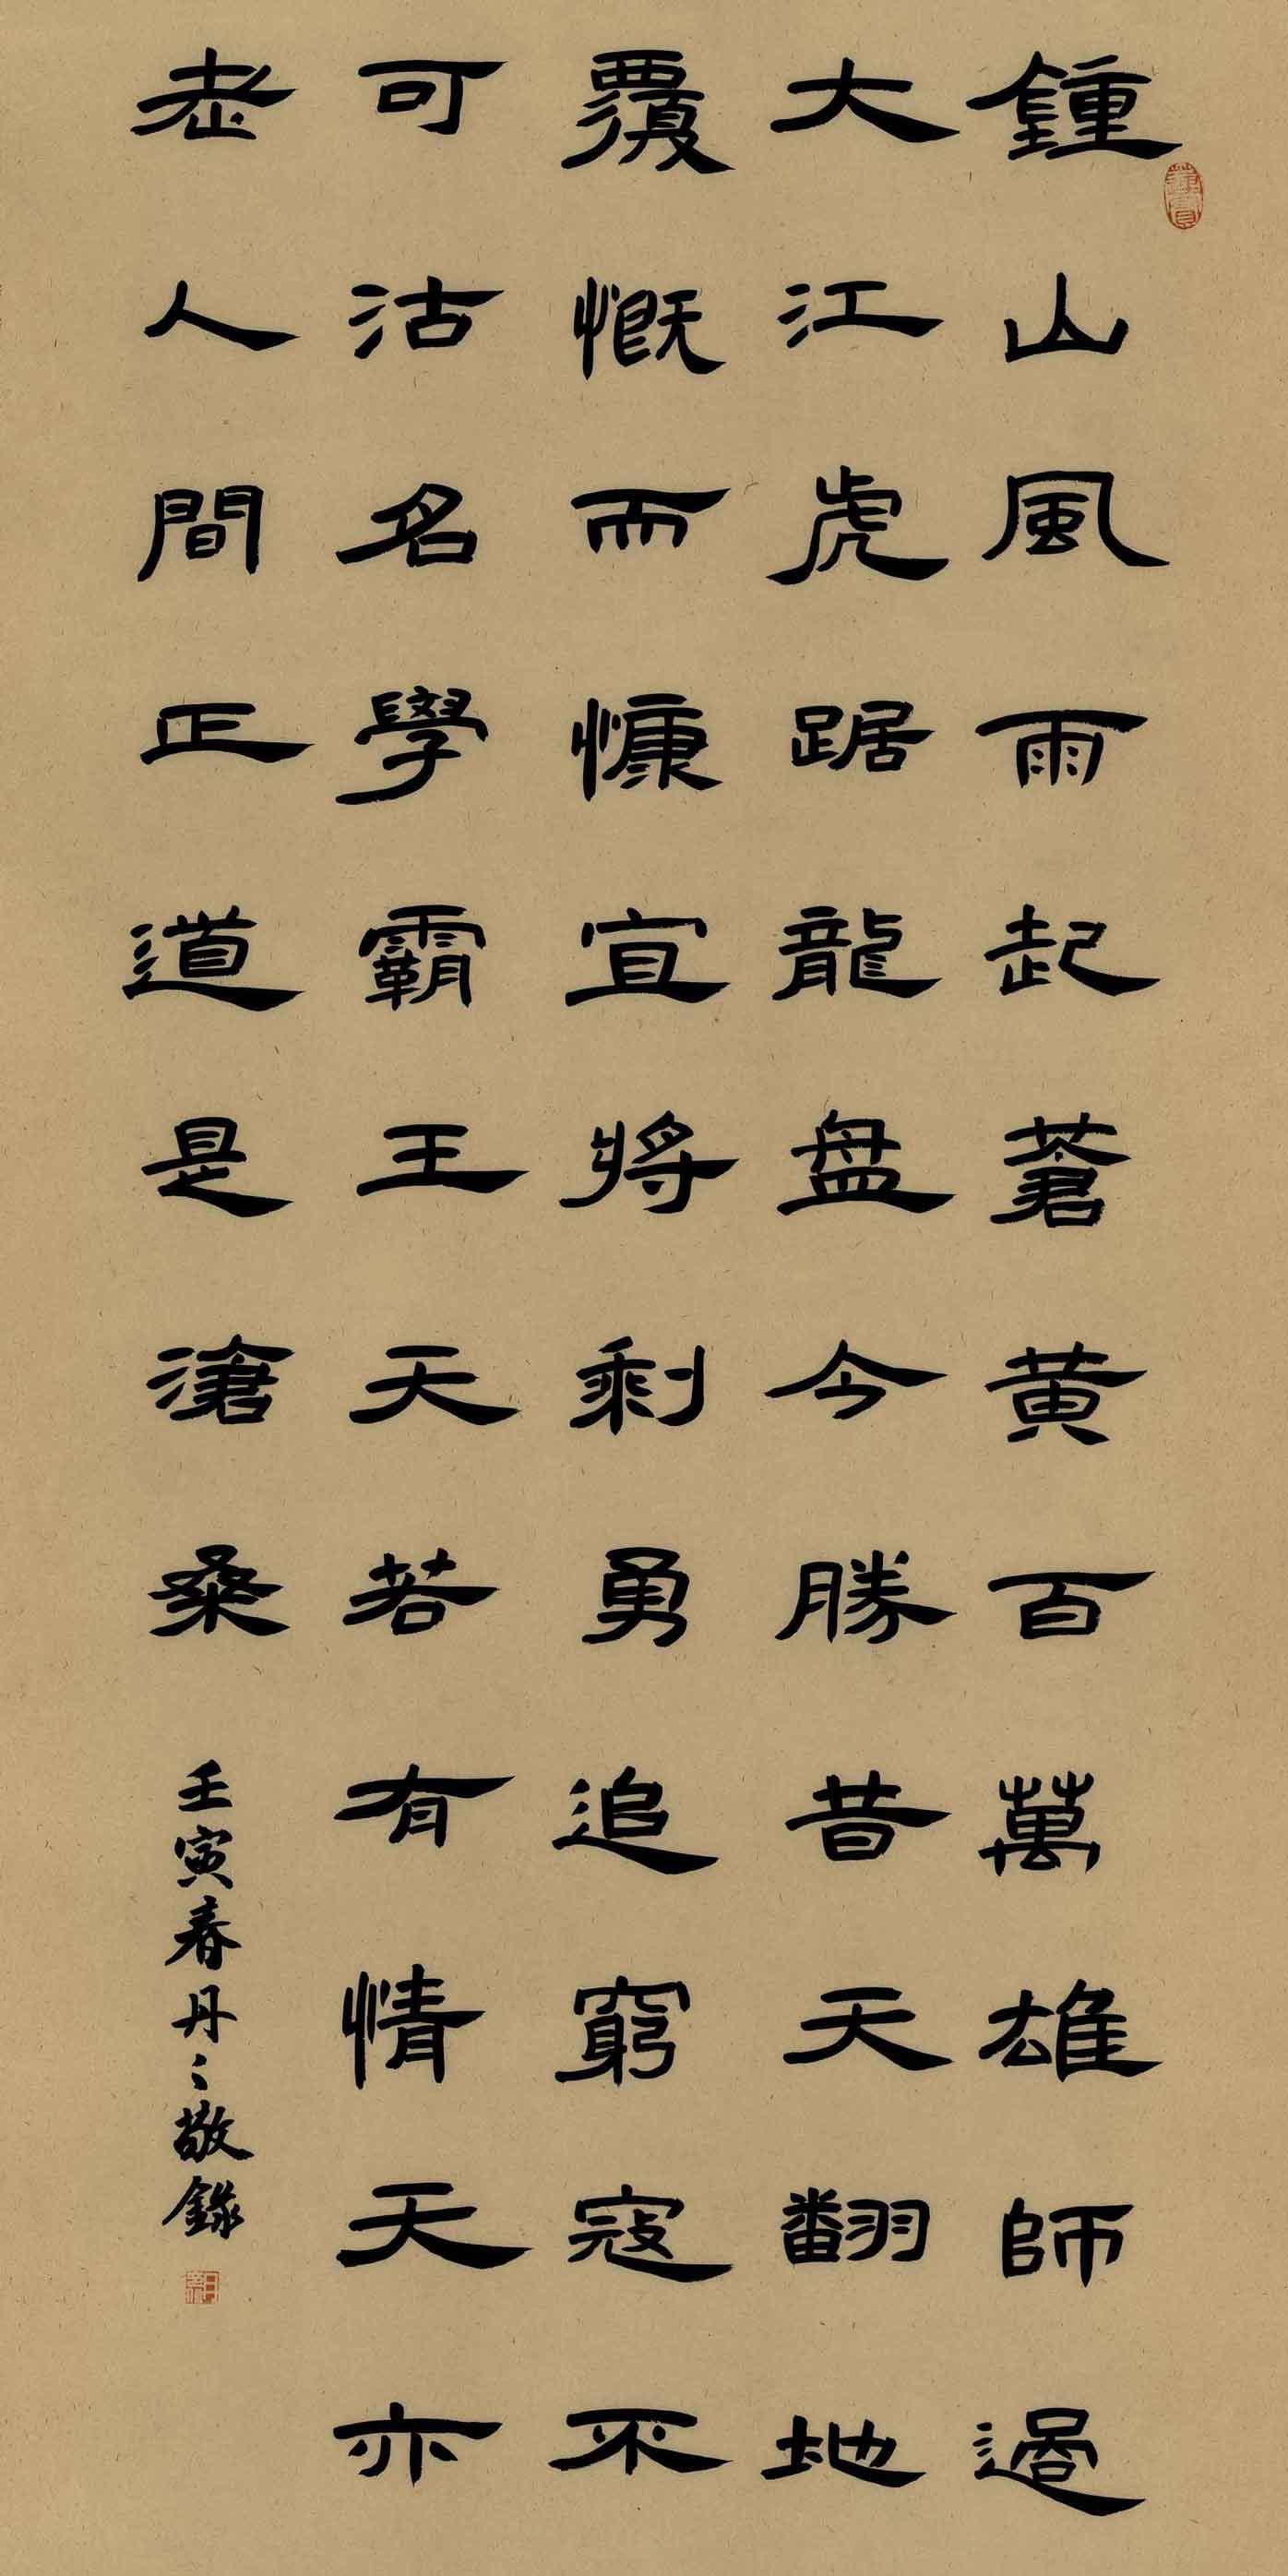 鍾山風雨起蒼黄百萬雄師過
大江虎踞龍盘今勝昔天翻地
覆慨而慷宜將剩勇追窮寇不
可沽名學霸王天若有情天亦
老人間正道是滄桑
壬寅春丹〻敬錄